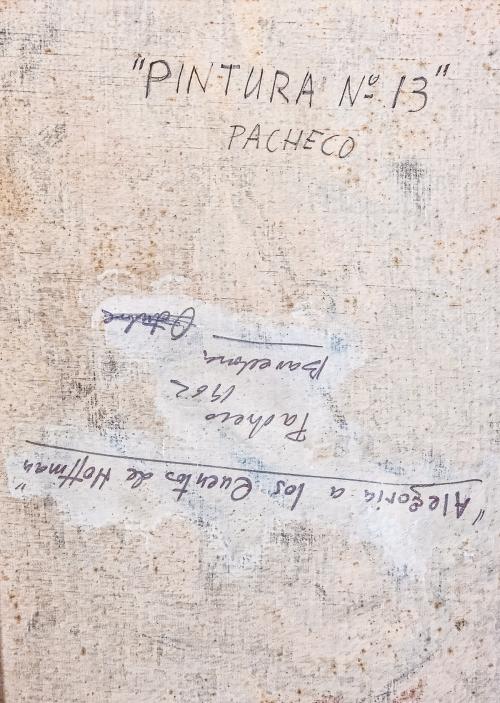 "PINTURA Nº 13"
PACHECO
"Alegoria a los Cuentos de Hoffman"
Pacheco
1962
Barcelona
Octubre